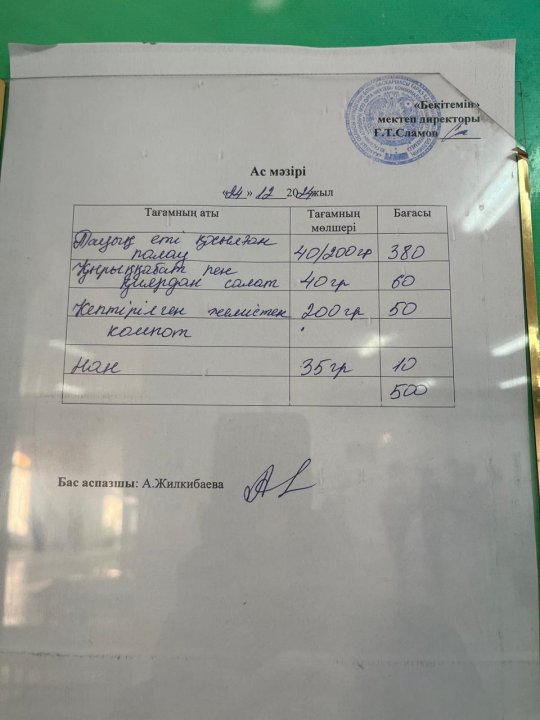 «Бекітемін»
мектеп директоры
Ғ.Т.Сламов
Ас мәзірі
«24» 12 2024жыл
Тағамның аты Тағамның мөлшері Бағасы
Тауық еті қосылған палау 40/200гр 380
Қырыққабат пен қиярдан салат 40гр 60
Кептірілген жемістен 200гр 50
компот
Нан 35гр 10
500
Бас аспазшы: А.Жилкибаева